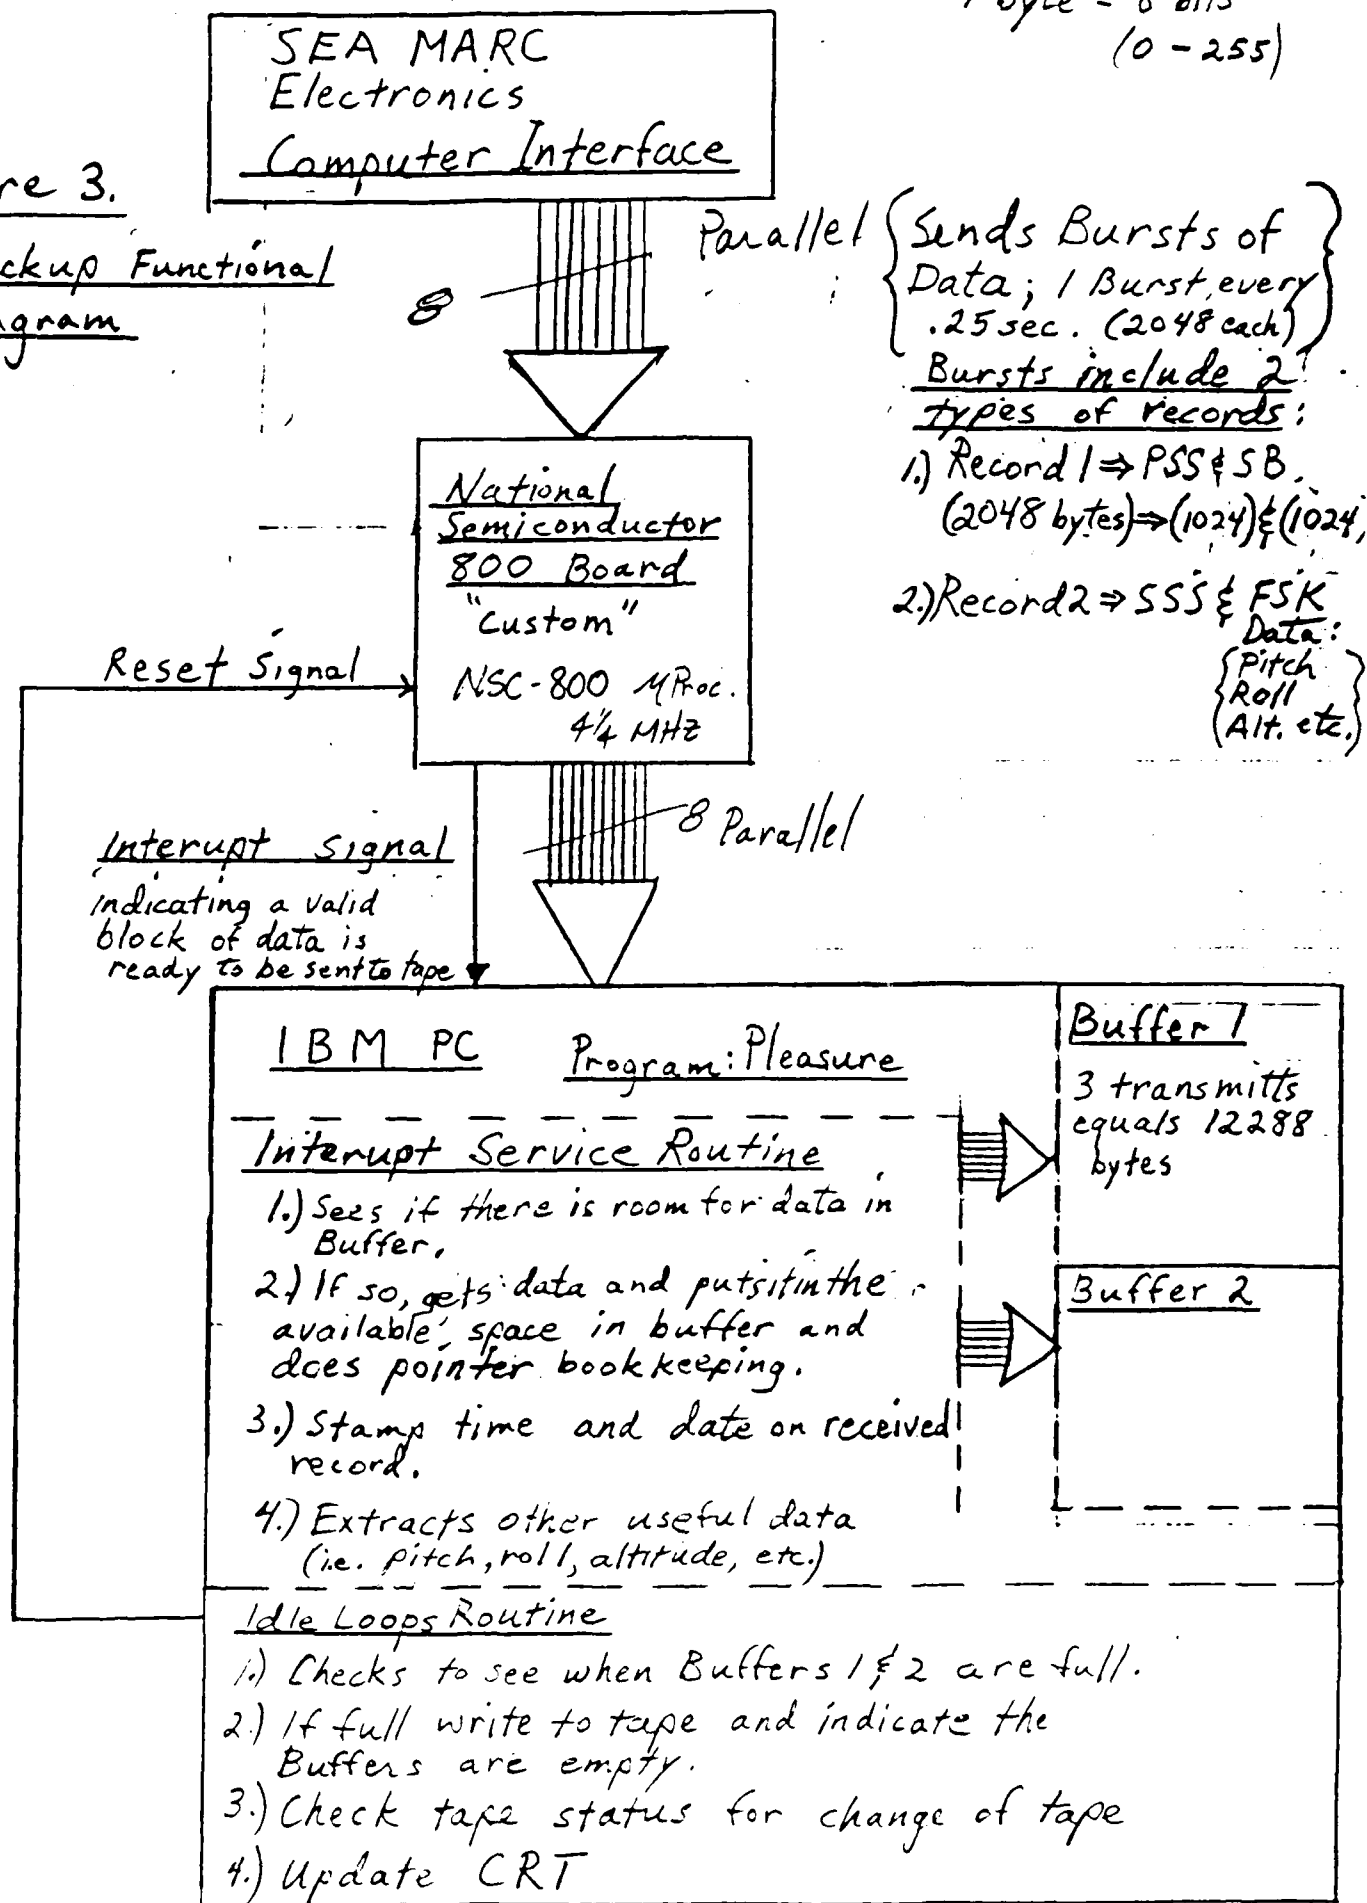 byte = 8 bits
(0 - 255)
SEA MARC
Electronics
Computer Interface
re 3.
ckup Functional
gram
8
Parallel
Sends Bursts of
Data; 1 Burst every
.25 sec. (2048 each)
Bursts include 2
types of records:
1.) Record 1 ⇒ PSS & SB.
(2048 bytes) ⇒ (1024) & (1024,
2.) Record 2 ⇒ SSS & FSK
Data:
Pitch
Roll
Alt. etc.
National
Semiconductor
800 Board
"Custom"
NSC-800 μProc.
4 1/4 MHz
Reset Signal
8 Parallel
Interupt Signal
indicating a valid
block of data is
ready to be sent to tape
IBM PC
Program: Pleasure
Interupt Service Routine
1.) Sees if there is room for data in
Buffer.
2.) If so, gets data and puts it in the
available space in buffer and
does pointer bookkeeping.
3.) Stamp time and date on received
record.
4.) Extracts other useful data
(i.e. pitch, roll, altitude, etc.)
Buffer 1
3 transmitts
equals 12288
bytes
Buffer 2
Idle Loops Routine
1.) Checks to see when Buffers 1 & 2 are full.
2.) If full write to tape and indicate the
Buffers are empty.
3.) Check tape status for change of tape
4.) Update CRT